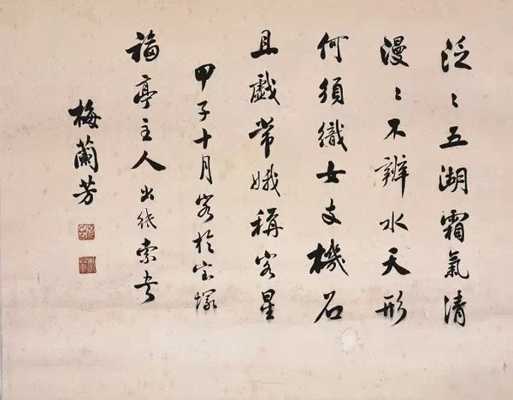 泛〻五湖霜氣清
漫〻不辨水天形
何須織女支機石
且戲常娥稱客星
甲子十月客於宝塚
福亭主人出紙索书
梅蘭芳